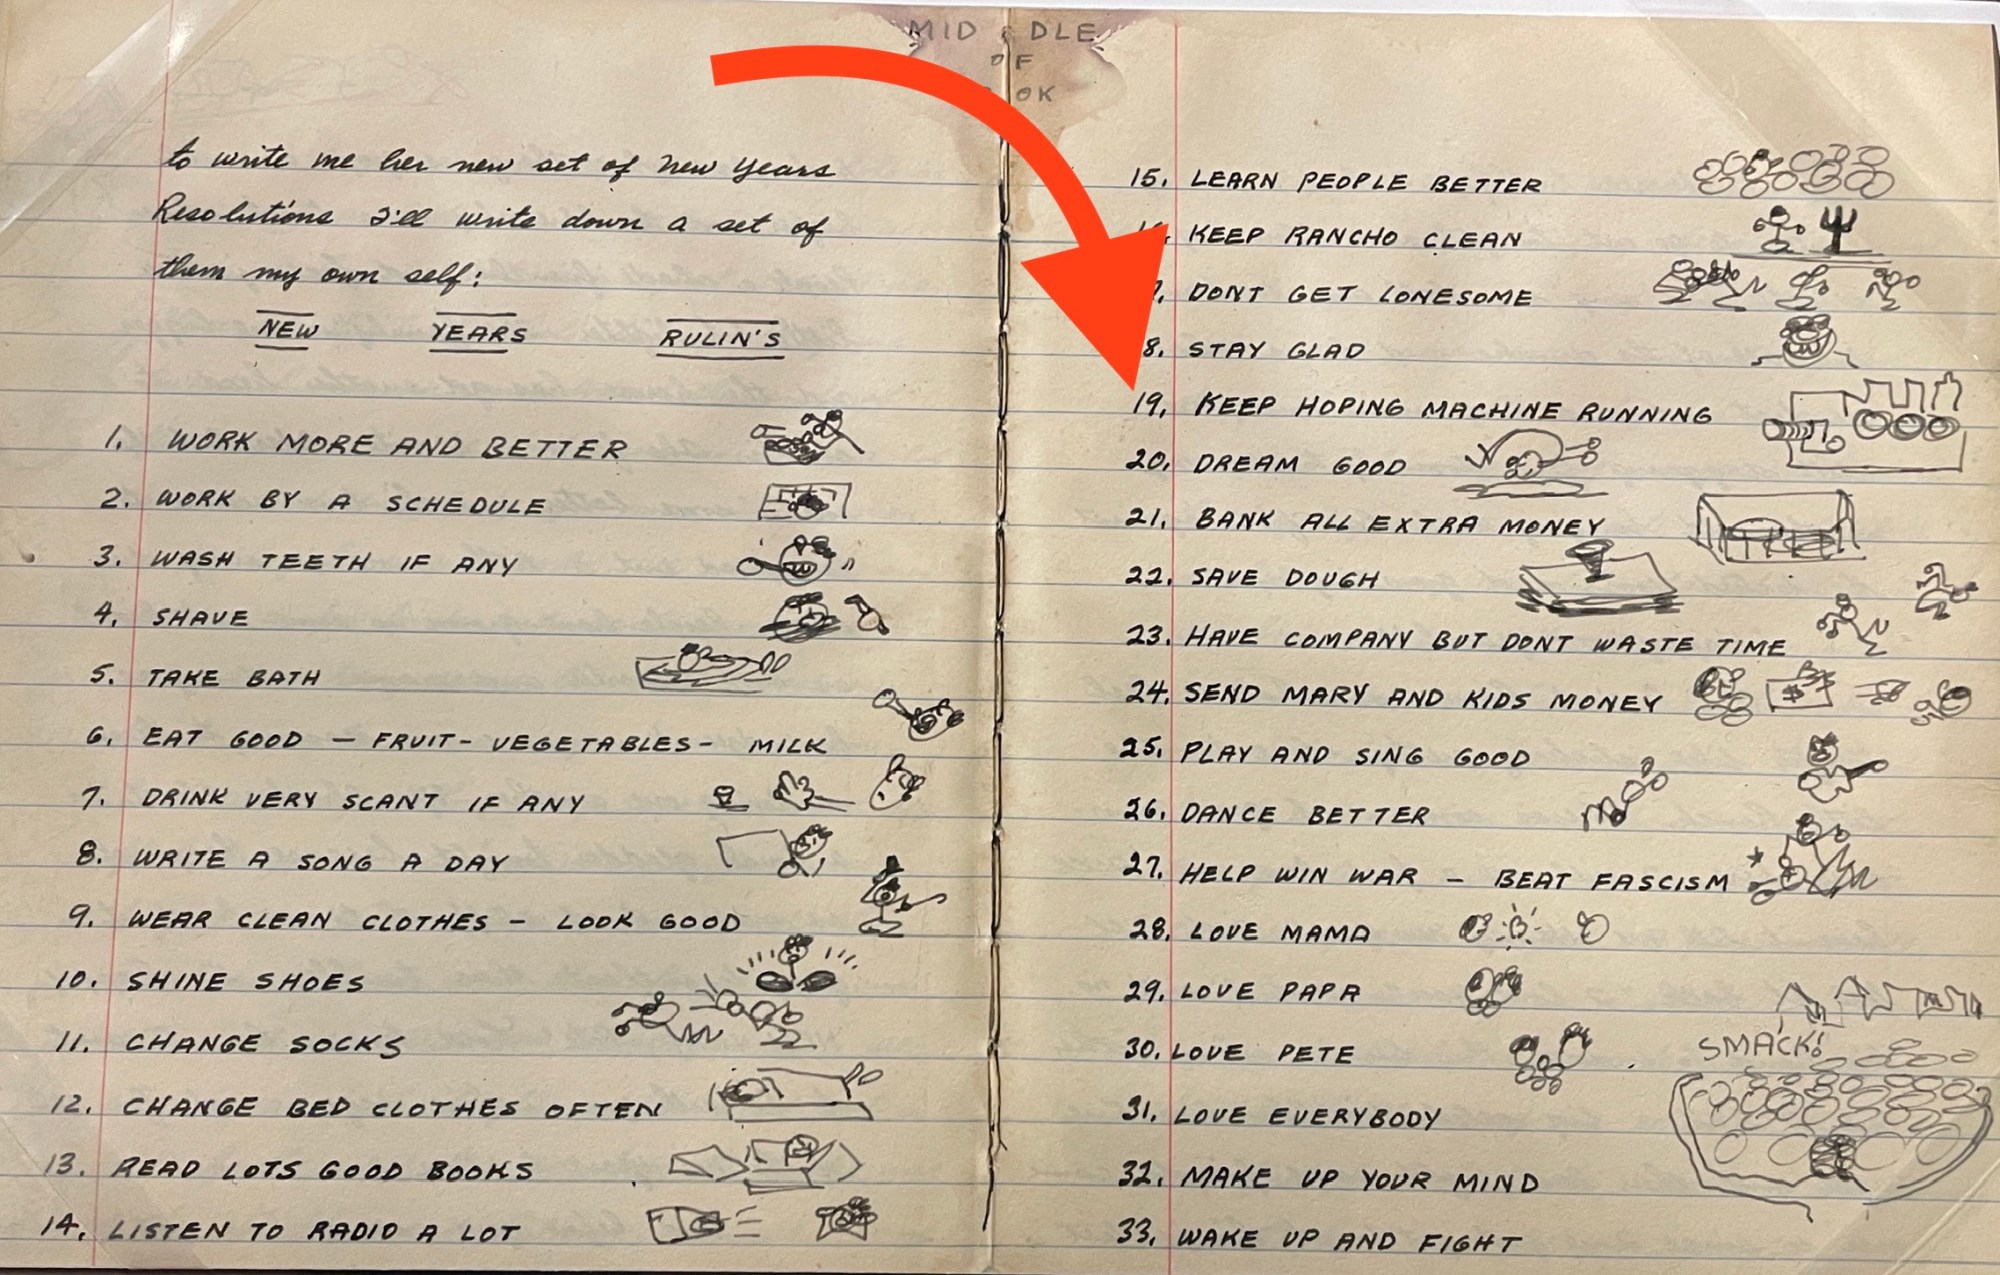 MIDDLE
OF
OK
to write me her new set of New Years
Resolutions I'll write down a set of
them my own self:
NEW YEARS RULIN'S
1. WORK MORE AND BETTER
2. WORK BY A SCHEDULE
3. WASH TEETH IF ANY
4. SHAVE
5. TAKE BATH
6. EAT GOOD — FRUIT - VEGETABLES - MILK
7. DRINK VERY SCANT IF ANY
8. WRITE A SONG A DAY
9. WEAR CLEAN CLOTHES — LOOK GOOD
10. SHINE SHOES
11. CHANGE SOCKS
12. CHANGE BED CLOTHES OFTEN
13. READ LOTS GOOD BOOKS
14. LISTEN TO RADIO A LOT
15. LEARN PEOPLE BETTER
KEEP RANCHO CLEAN
DONT GET LONESOME
8. STAY GLAD
19. KEEP HOPING MACHINE RUNNING
20. DREAM GOOD
21. BANK ALL EXTRA MONEY
22. SAVE DOUGH
23. HAVE COMPANY BUT DONT WASTE TIME
24. SEND MARY AND KIDS MONEY
$
25. PLAY AND SING GOOD
26. DANCE BETTER
27. HELP WIN WAR — BEAT FASCISM
28. LOVE MAMA
29. LOVE PAPA
30. LOVE PETE
SMACK!
31. LOVE EVERYBODY
32. MAKE UP YOUR MIND
33. WAKE UP AND FIGHT